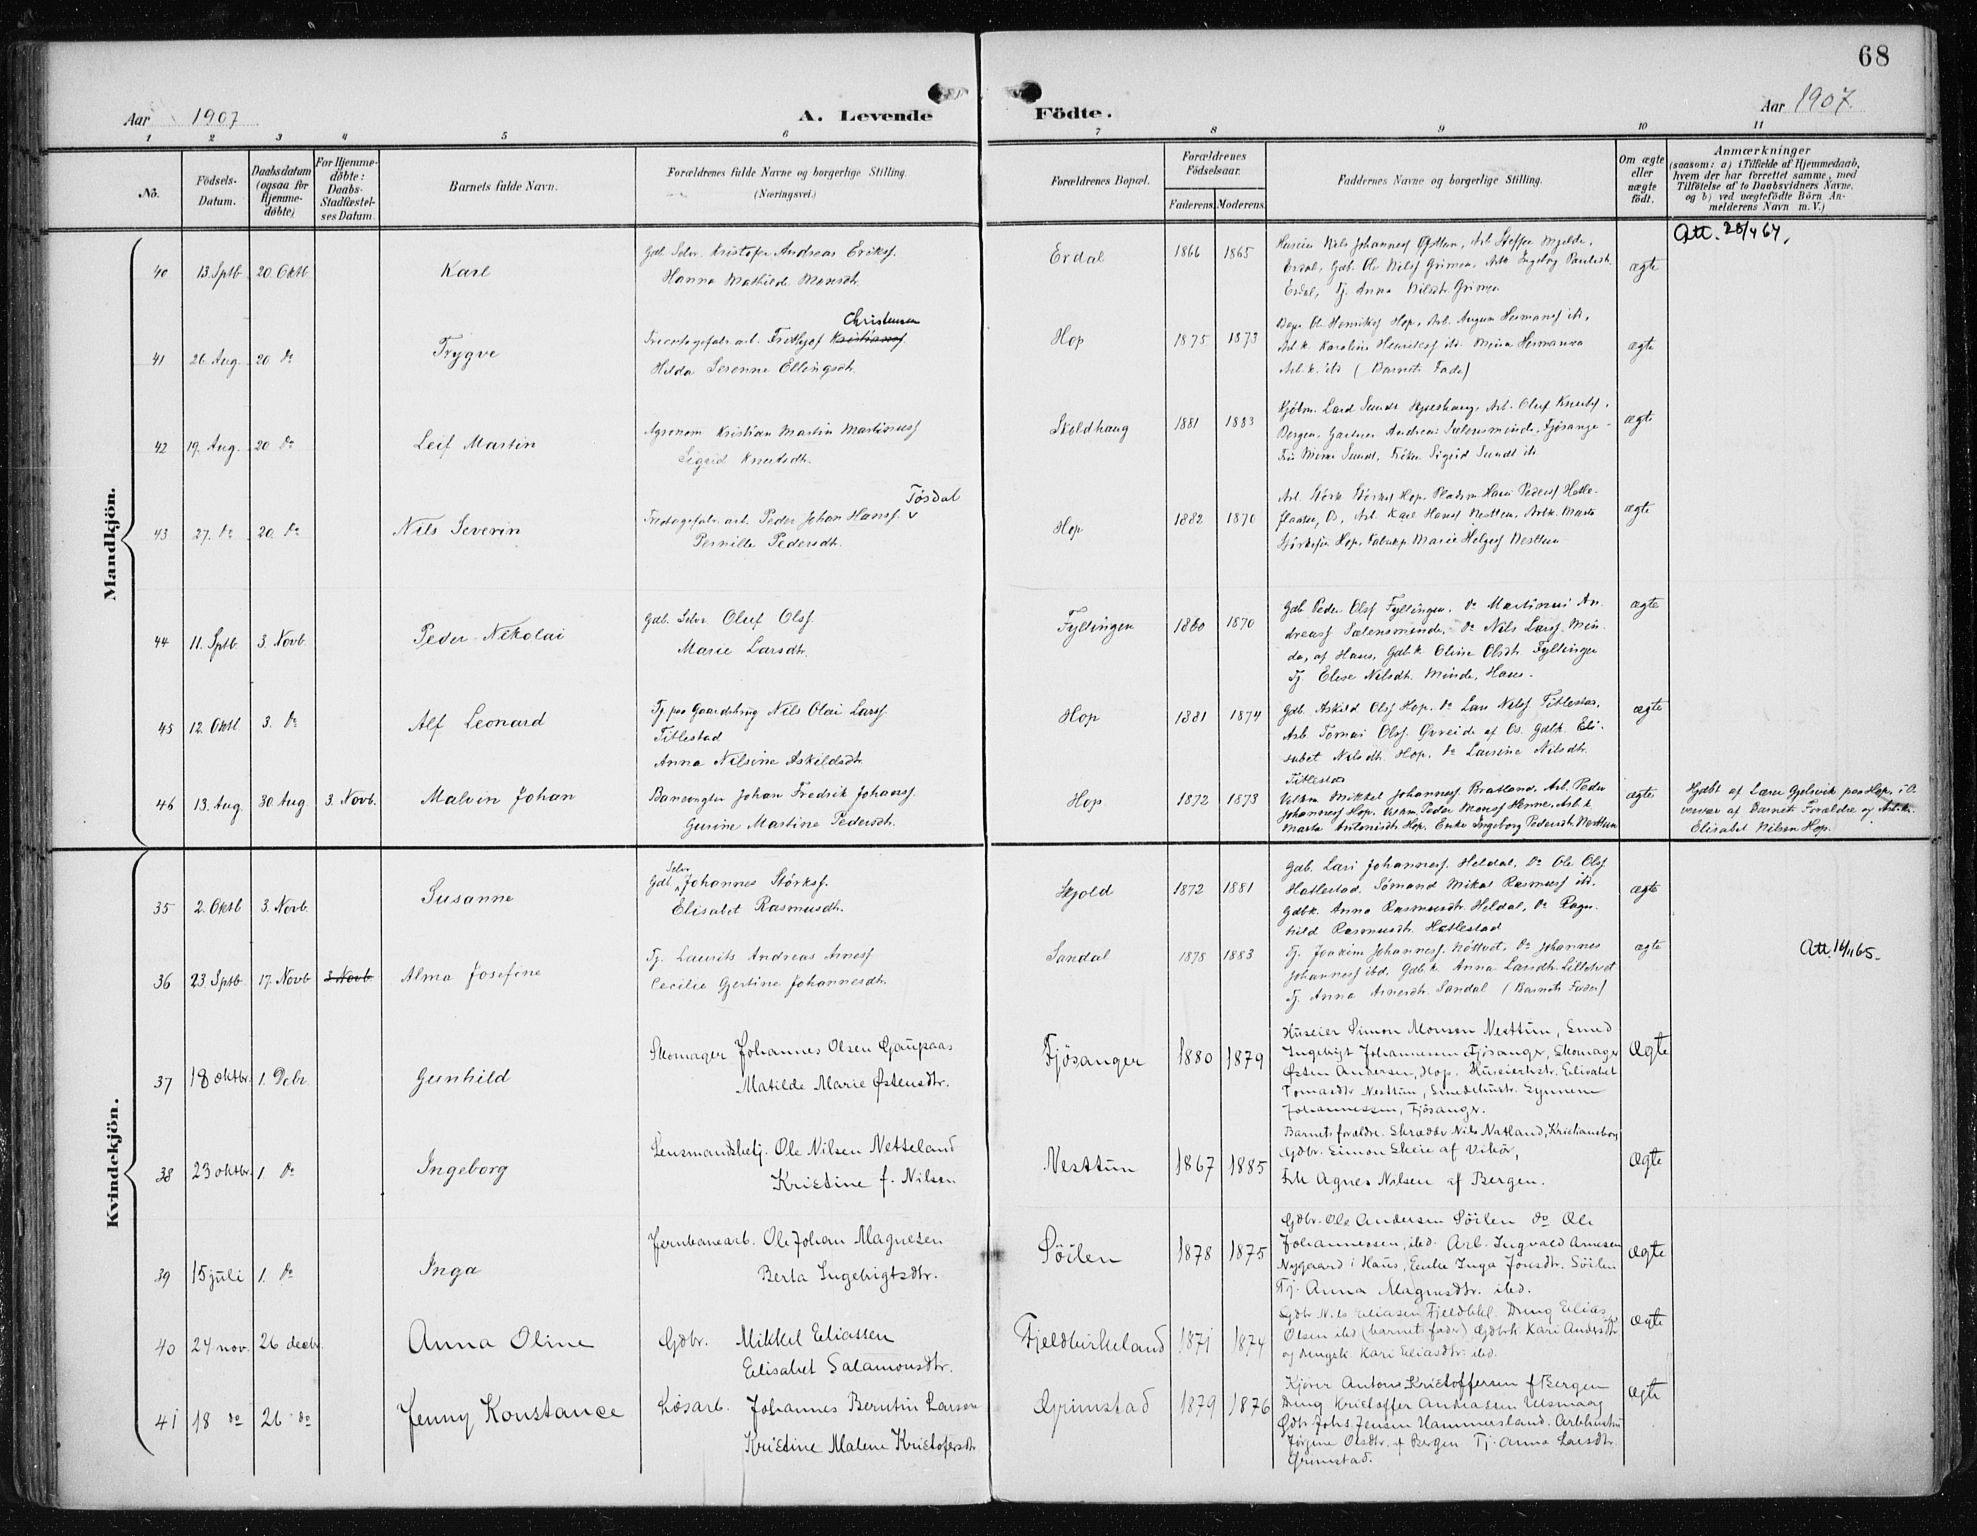 68
Aar 1907
A. Levende
Födte.
Aar 1907.
1 2 3 4 5 6 7 8 9 10 11
No.
Födsels-
Datum.
Daabsdatum
(ogsaa for
Hjemme-
döbte)
For Hjemme-
döbte:
Daabs-
Stadfæstel-
ses Datum.
Barnets fulde Navn.
Forældrenes fulde Navne og borgerlige Stilling.
(Næringsvei.)
Forældrenes Bopæl.
Forældrenes
Födselsaar.
Faderens. Moderens.
Faddernes Navne og borgerlige Stilling.
Om ægte
eller
uægte
født.
Anmærkninger
(saasom: a) i Tilfælde af Hjemmedaab,
hvem der har forrettet samme, med
Tilföielse af to Daabsvidners Navne,
og b) ved uægtefödte Börn An-
melderens Navn m. V.)
Mandkjön.
Att. 28/4 64.
40 13. Sptb. 20. Oktb Karl
Gdb. Selv. Kristofer Andreas Eriksf.
Hanna Mathilde Monsdtr.
Erdal 1866 1865
Erdal, Gdb. Ole Nilsf Grimen, Arbk Ingeborg Paulsdt.
Erdal, Tj. Anna Nilsdtr. Grimen
ægte
41 26. Aug. 20 do Trygve
Christensen
Fridtjof Kristiansf
Hilda Serenne Ellingsdtr.
Hop 1875 1873
Ole Henriksf Hop, Arb. August Hermansf ibd,
Arbk. Karoline Henriksf ibd. Mina Hermansen
Arbk. ibd (Barnets Fader)
ægte
42 19. Aug. 20 do Leif Martin
Agronom Kristian Martin Martinusf
Sigrid Knutsdtr.
Skjoldhaug 1881 1883
Kjøbm. Lard Sundt Arb. Oluf Knutsf,
Bergen, Gartner Andreas Sælensminde, Fjøsanger
Sundt, Frøken Sigrid Sundt ib
ægte
43 27. do 20. do Nils Severin
Tøsdal
arb. Peder Johan Hansf.
Pernille Pedersdtr.
Hop 1882 1870
Arb. Størk Størksf Hop, Pladsm Hans Pedersf Hatle-
flaaten, Os, Arb. Karl Hansf Nesttun, Arbk. Marta
Størksen Hop, Marie Helgesf Nesttun
ægte
44 11. Sptb. 3. Novb. Peder Nikolai
Gdb. Selv. Oluf Olsf.
Marie Larsdtr.
Fyllingen 1880 1870
Gdb. Peder Olsf Fyllingen, do Martinus An-
dreasf Sælensminde, do Nils Larsf. Min-
de, af Haus, Gdbk Oline Olsdtr. Fyllingen
Tj. Elise Nilsdtr. Minde, Haus.
ægte
45 12. Oktb. 3. do Alf Leonard
Tj. paa Gaardsbrug Nils Olai Larsf
Titlestad
Anna Nilsine Askildsdtr.
Hop 1881 1874
Gdb. Askild Olsf Hop. do Lars Nilsf Titlestad,
Arb. Tørnes Olsf. Øvreide af Os. Gdbk. Eli-
sabet Nilsdtr. Hop. do Laurine Nilsdtr.
Titlestad
ægte
46 13. Aug. 30 Aug. 3. Novb. Malvin Johan
Banevogter Johan Fredrik Johansf.
Gurine Martine Pedersdtr.
Hop 1872 1873
Mikkel Johannesf Bratland, Arb. Peder
Johannesf Hop, Peder Monsf Henne, Arbk.
Marta Antonisdtr Hop, Enke Ingeborg Pedersdtr. Nesttun
ægte
Hjdøbt af Lærer Gjelsvik paa Hop, i O-
vervær af Barnets Forældre og Arbk.
Elisabet Nilsen Hop.
Kvindekjön.
35 2. Oktb 3. Novb. Susanne
Selv
Gdb. Johannes Størksf.
Elisabet Rasmusdtr.
Skjold 1872 1881
Gdb. Lars Johannesf. Heldal, do Ole Olsf
Hatlestad. Sømand Mikal Rasmusf ibd.
Gdbk. Anna Rasmusdtr. Heldal, do Ragn-
hild Rasmusdtr. Hatlestad
ægte
36 23. Sptb. 17. Novb 3 Novb. Alma Josefine
Tj. Laurits Andreas Arnesf
Cecilie Gjertine Johannesdtr.
Sandal 1878 1883
Tj. Joakim Johannesf. Nøttveit, do Johannes
Johannesf ibd. Gdbk. Anna Larsdtr. Lilletvet
Tj. Anna Arnesdtr. Sandal (Barnets Fader)
ægte
Att. 16/11 65.
37 18 oktbr. 1. Debr. Gunhild
Skomager Johannes Olsen Gaupaas
Matilde Marie Østensdtr.
Fjøsanger 1880 1879
Huseier Simon Monsen Nesttun, Smed
Ingebrigt Johannessen Fjøsanger, Skomager
Østen Andersen, Hop. Huseierhstr. Elisabet
Tomasdtr Nesttun, Smedehustr. Synneva
Johannessen, Fjøsangr.
ægte
38 23 oktbr. 1. do Ingeborg
Lensmandsbetj. Ole Nilsen Netteland
Kristine f. Nilsen
Nesttun 1867 1885
Barnets forældre. Skrædder Nils Natland, Kristiansborg
Gdbr. Simon Skeie af Vikør,
Frk Agnes Nilsen af Bergen.
ægte
39 15 juli 1. do Inga
Jernbanearb. Ole Johan Magnesen
Berta Ingebrigtsdtr.
Söilen 1878 1875
Gdbr. Ole Andersen Söilen do Ole
Johannessen, ibd. Arb. Ingvald Arnesen
Nygaard i Haus, Enke Inga Jonsdtr. Söilen
Tj. Anna Magnesdtr. ibd.
ægte
40 24 nov. 26 decbr. Anna Oline
Gdbr. Mikkel Eliassen
Elisabet Salamonsdtr.
Fjeldbirkeland 1871 1874
Gdbr Nils Eliasen Fjeldbkl. Dreng Elias
Olsen ibd (barnets fader) Gdbrk. Kari Andersdtr
og Kari Eliasdtr. ibd.
ægte
41 18 do 26 do Jenny Konstance
Løsarb. Johannes Berntin Larsen
Kristine Malene Kristofersdtr
Grimstad 1879 1876
Kjører Antons Kristoffersen f Bergen
Dreng Kristoffer Andreasen
Gdbr Johs. Jensen Hammersland. Arbhustru
Jørgine Olsdtr. f Bergen Tj. Anna Larsdtr
Grimstad.
ægte